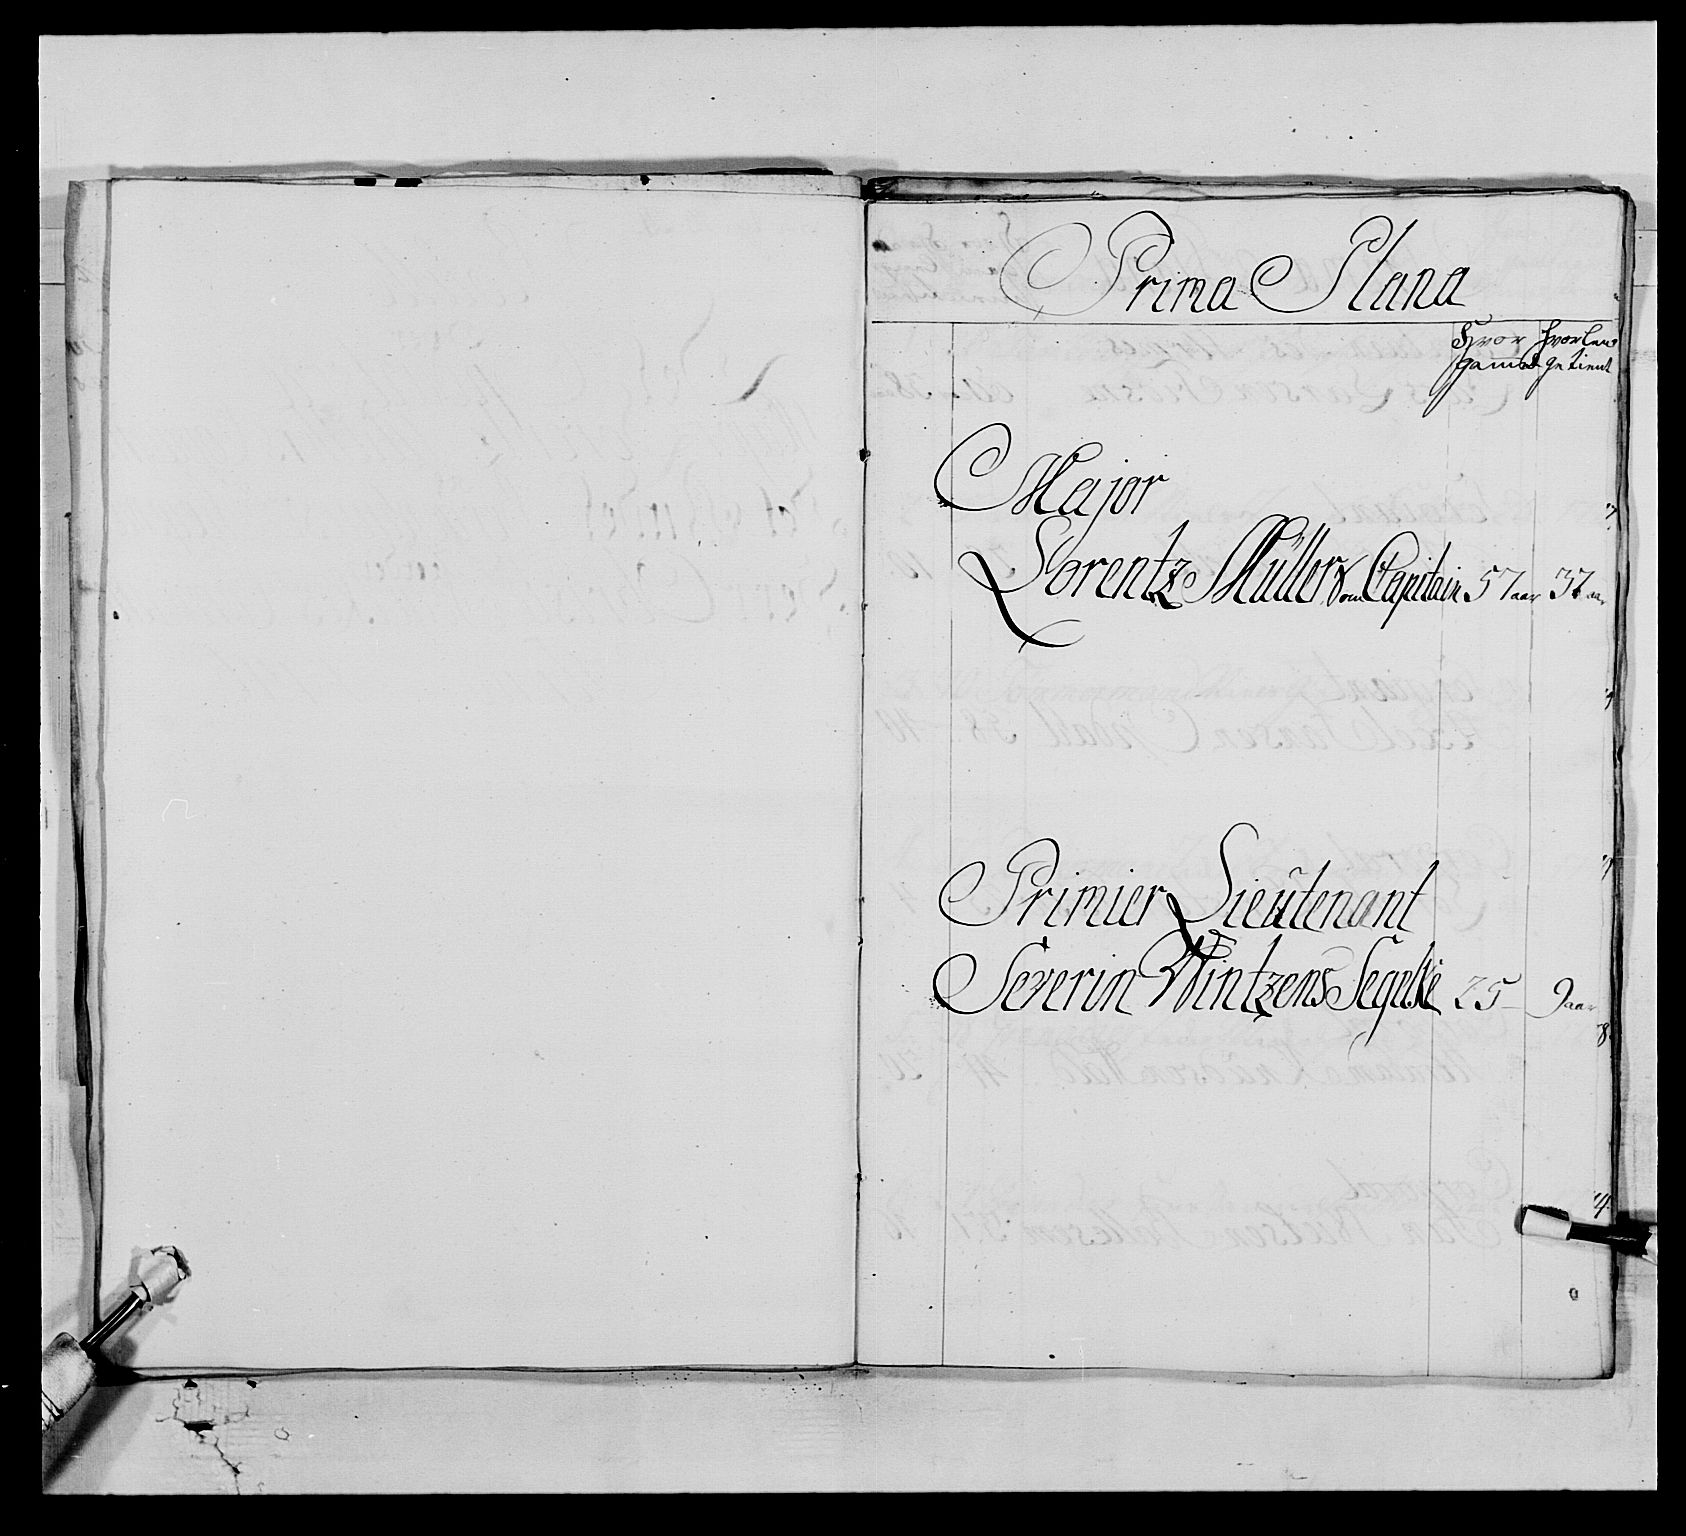 Prima Plana
Hvor hvorlen
gamel getient
Major
Lorentz Müller Capitain 57 aar 37 aar
Primier Lieutenant
Severin Wintzens Segelke 25 9 aar